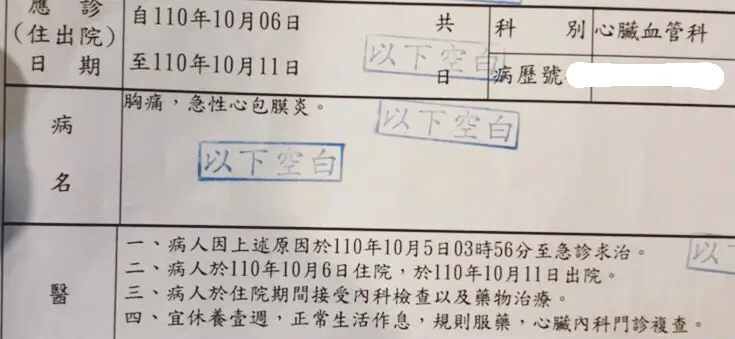 應診
(住出院)
日期
自110年10月06日
至110年10月11日
共
日
以下空白
科別
心臟血管科
病歷號
病名
胸痛，急性心包膜炎。
以下空白
以下空白
醫
一、病人因上述原因於110年10月5日03時56分至急診求治。
二、病人於110年10月6日住院，於110年10月11日出院。
三、病人於住院期間接受內科檢查以及藥物治療。
四、宜休養壹週，正常生活作息，規則服藥，心臟內科門診複查。
以下